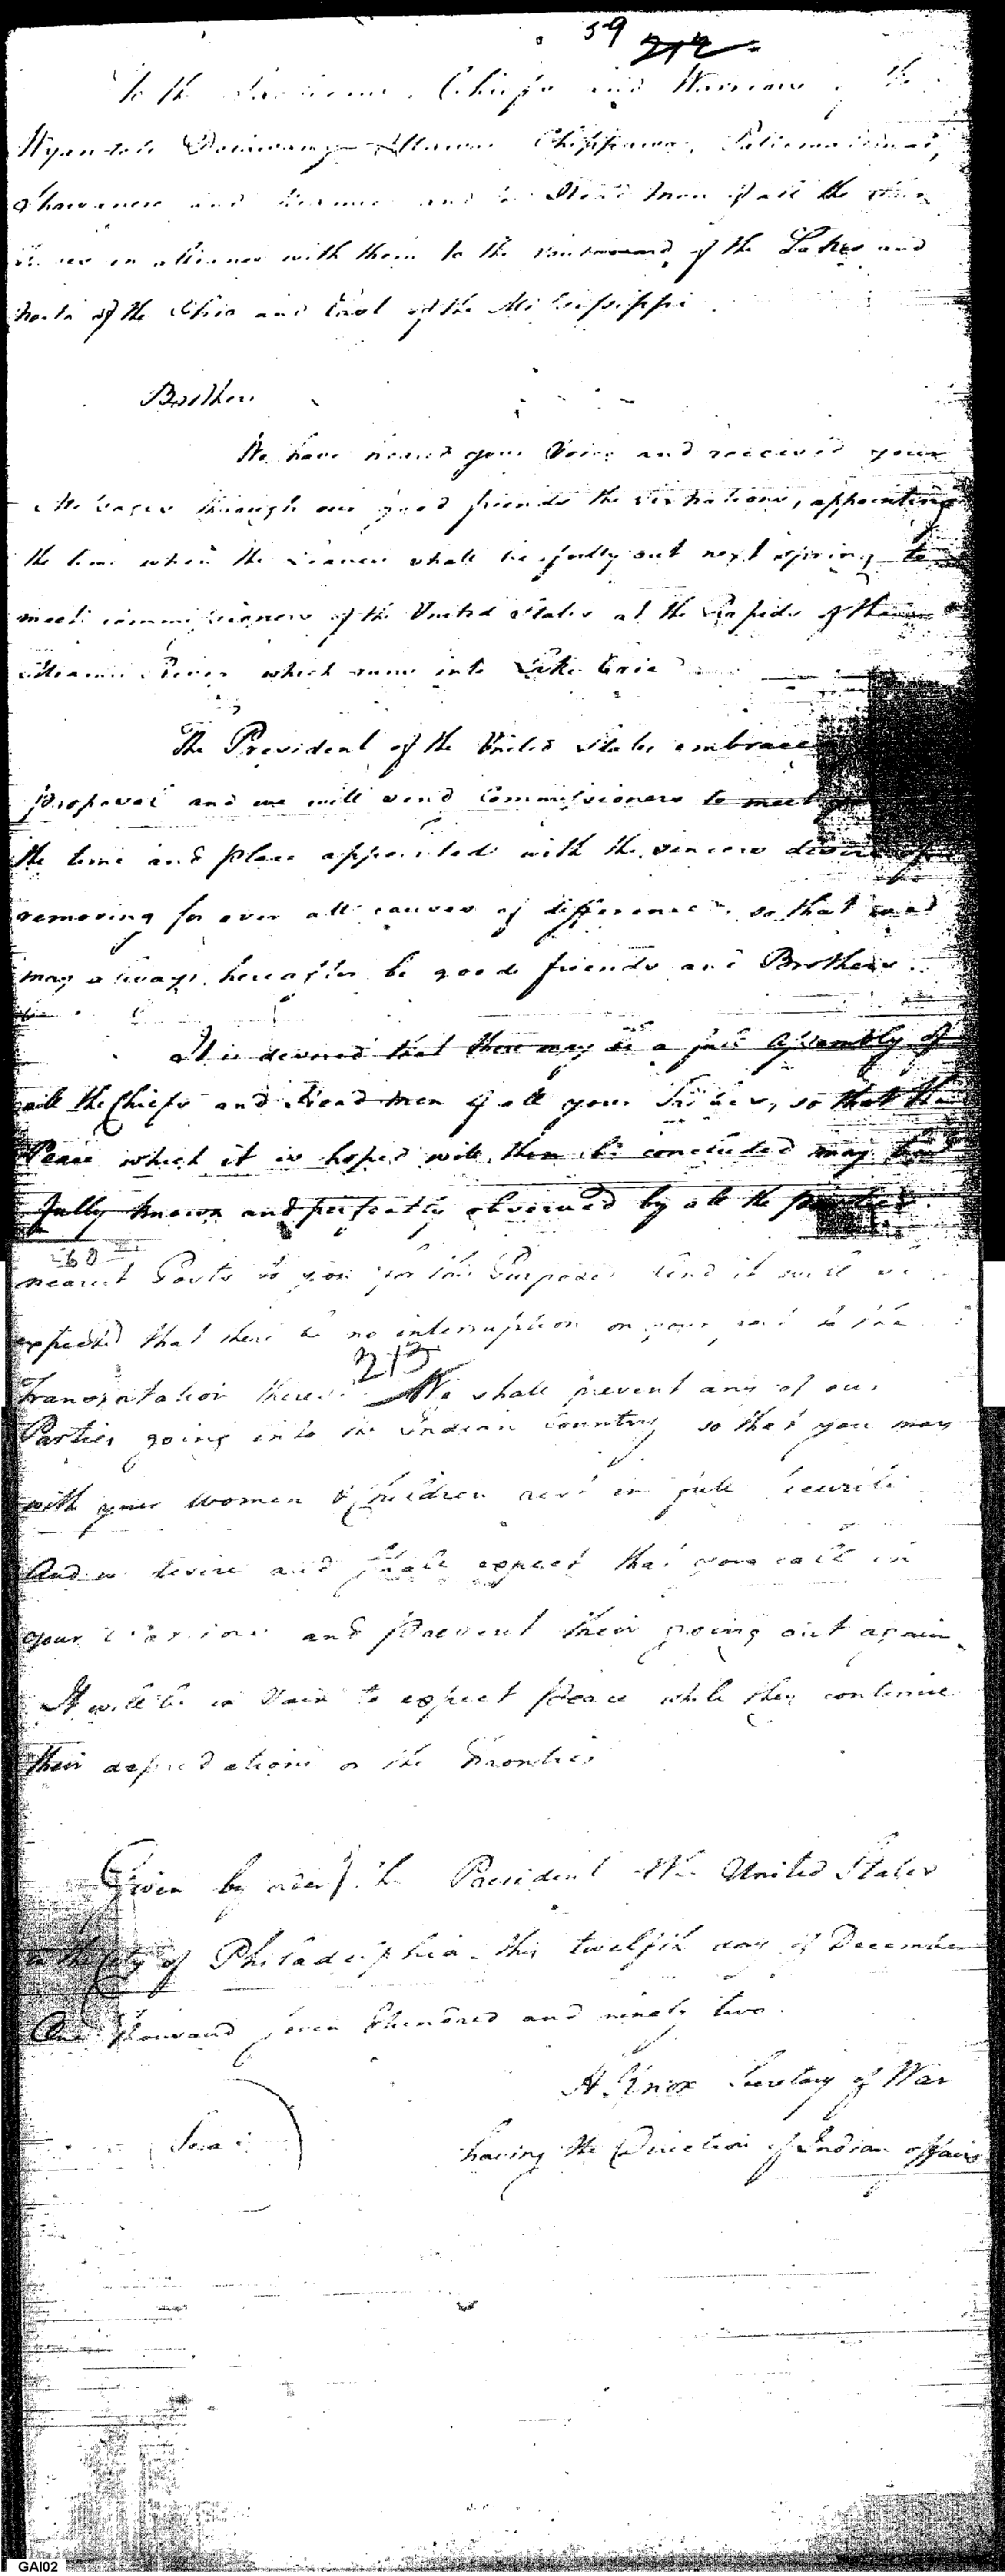 59 212
To the Sachems, Chiefs and Warriors of the
Wyandots Chippawas,
Shawanese and and Head Men of all the
in alliance with them to the of the Lakes and
North of the Ohio and East of the Mississippi
Brothers
We have heard your Voice and received your
Messages through our good friends the six nations, appointing
the time when the Leaves shall be fully out next spring to
meet commissioners of the United States at the Rapids of the
Miami River which runs into Lake Erie
The President of the United States embraces
proposal and we will send Commissioners to meet
the time and place appointed with the sincere desire of
removing for ever all causes of difference so that we
may always hereafter be good friends and Brothers.
It is desired that there may be a full Assembly of
all the Chiefs and Head Men of all your Tribes, so that the
Peace which it is hoped will then be concluded may be
fully known and perfectly observed by all the parties.
nearest Posts to you for this Purpose And it will be
expected that there be no interruption on your part to the
213
Transportation thereof We shall prevent any of our
Parties going into the Indian Country so that you may
with your Women & Children rest in full security
And we desire and shall expect that you call in
your Warriors and prevent their going out again.
It will be in Vain to expect Peace while they continue
their depredations on the Frontier
Given by order of the President of the United States
in the City of Philadelphia this twelfth day of December
One thousand seven Hundred and ninety two.
H Knox Secretary of War
Seal
having the Direction of Indian affairs
GAI02